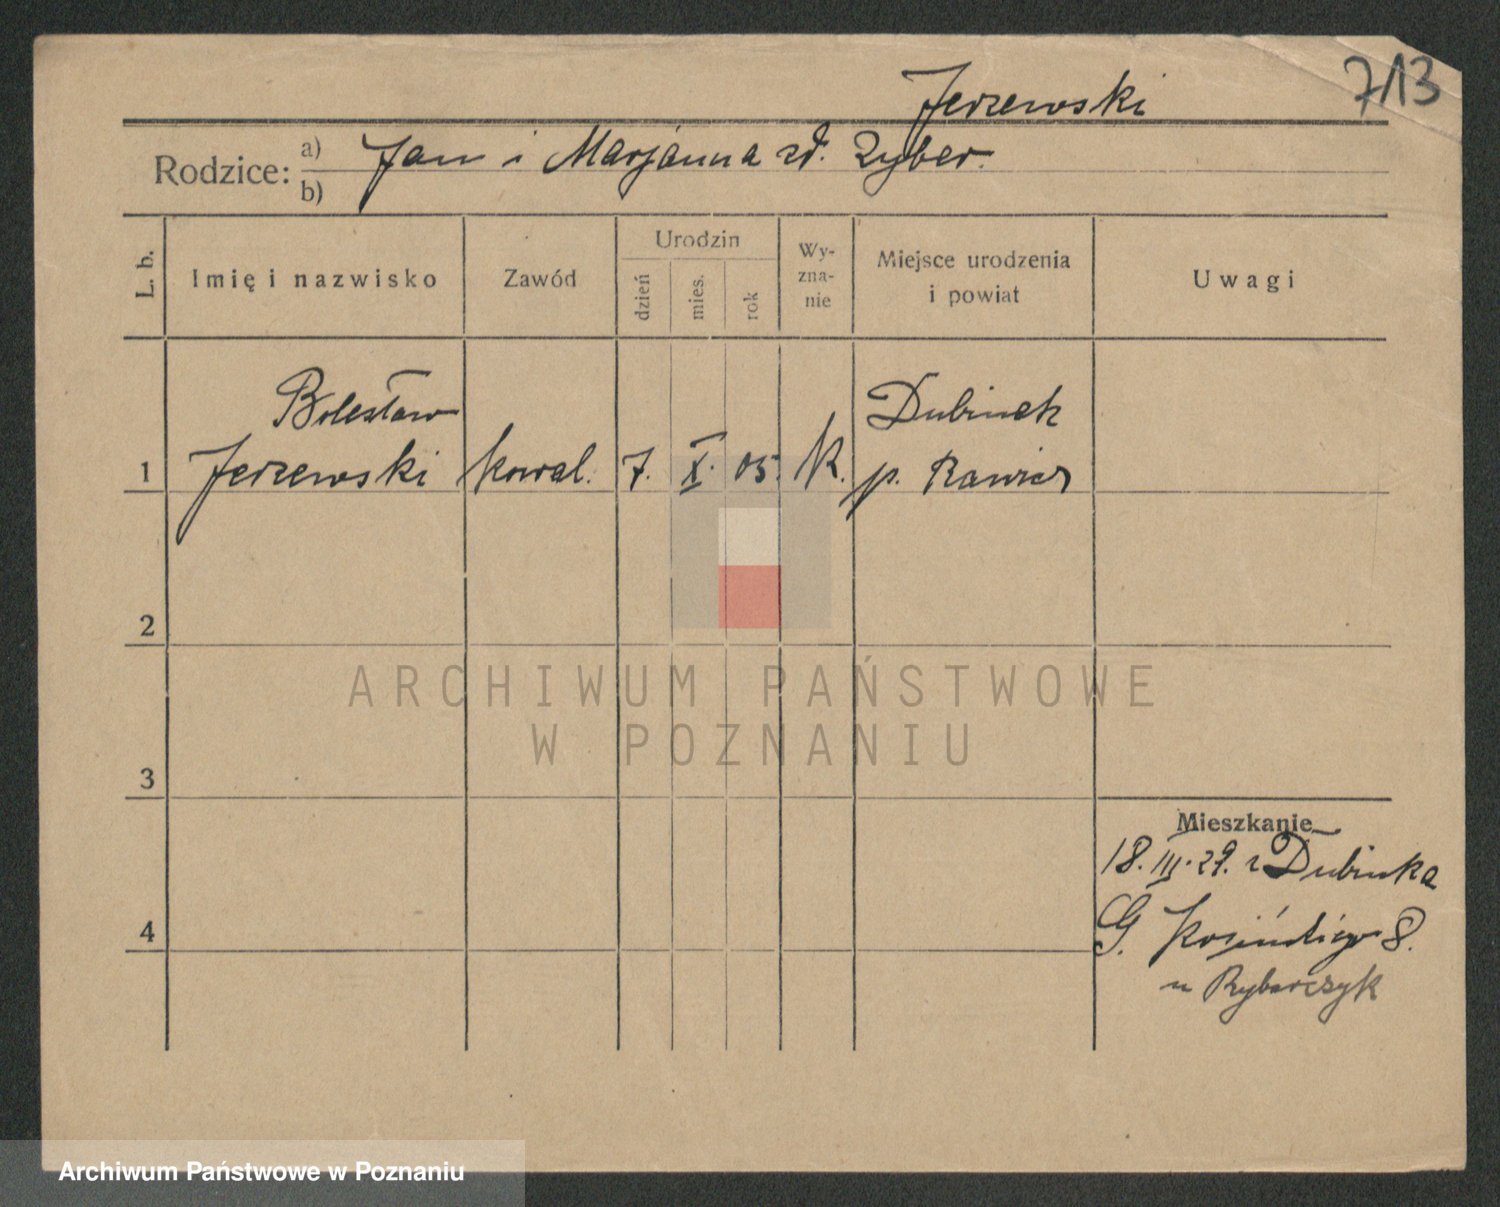 713
Jerzewski
Rodzice: a) Jan i Marjanna zd. Ryber.
b)
L. b.
Imię i nazwisko
Zawód
Urodzin
dzień
mies.
rok
Wy-
zna-
nie
Miejsce urodzenia
i powiat
Uwagi
1
Bolesław
Jerzewski
kowal.
7.
X.
05.
K.
Dubinek
p. Rawicz
2
3
4
Mieszkanie
18.III.29. z Dubinka
G. Kosińskiego 8.
u Rybarczyk
ARCHIWUM PAŃSTWOWE
W POZNANIU
Archiwum Państwowe w Poznaniu